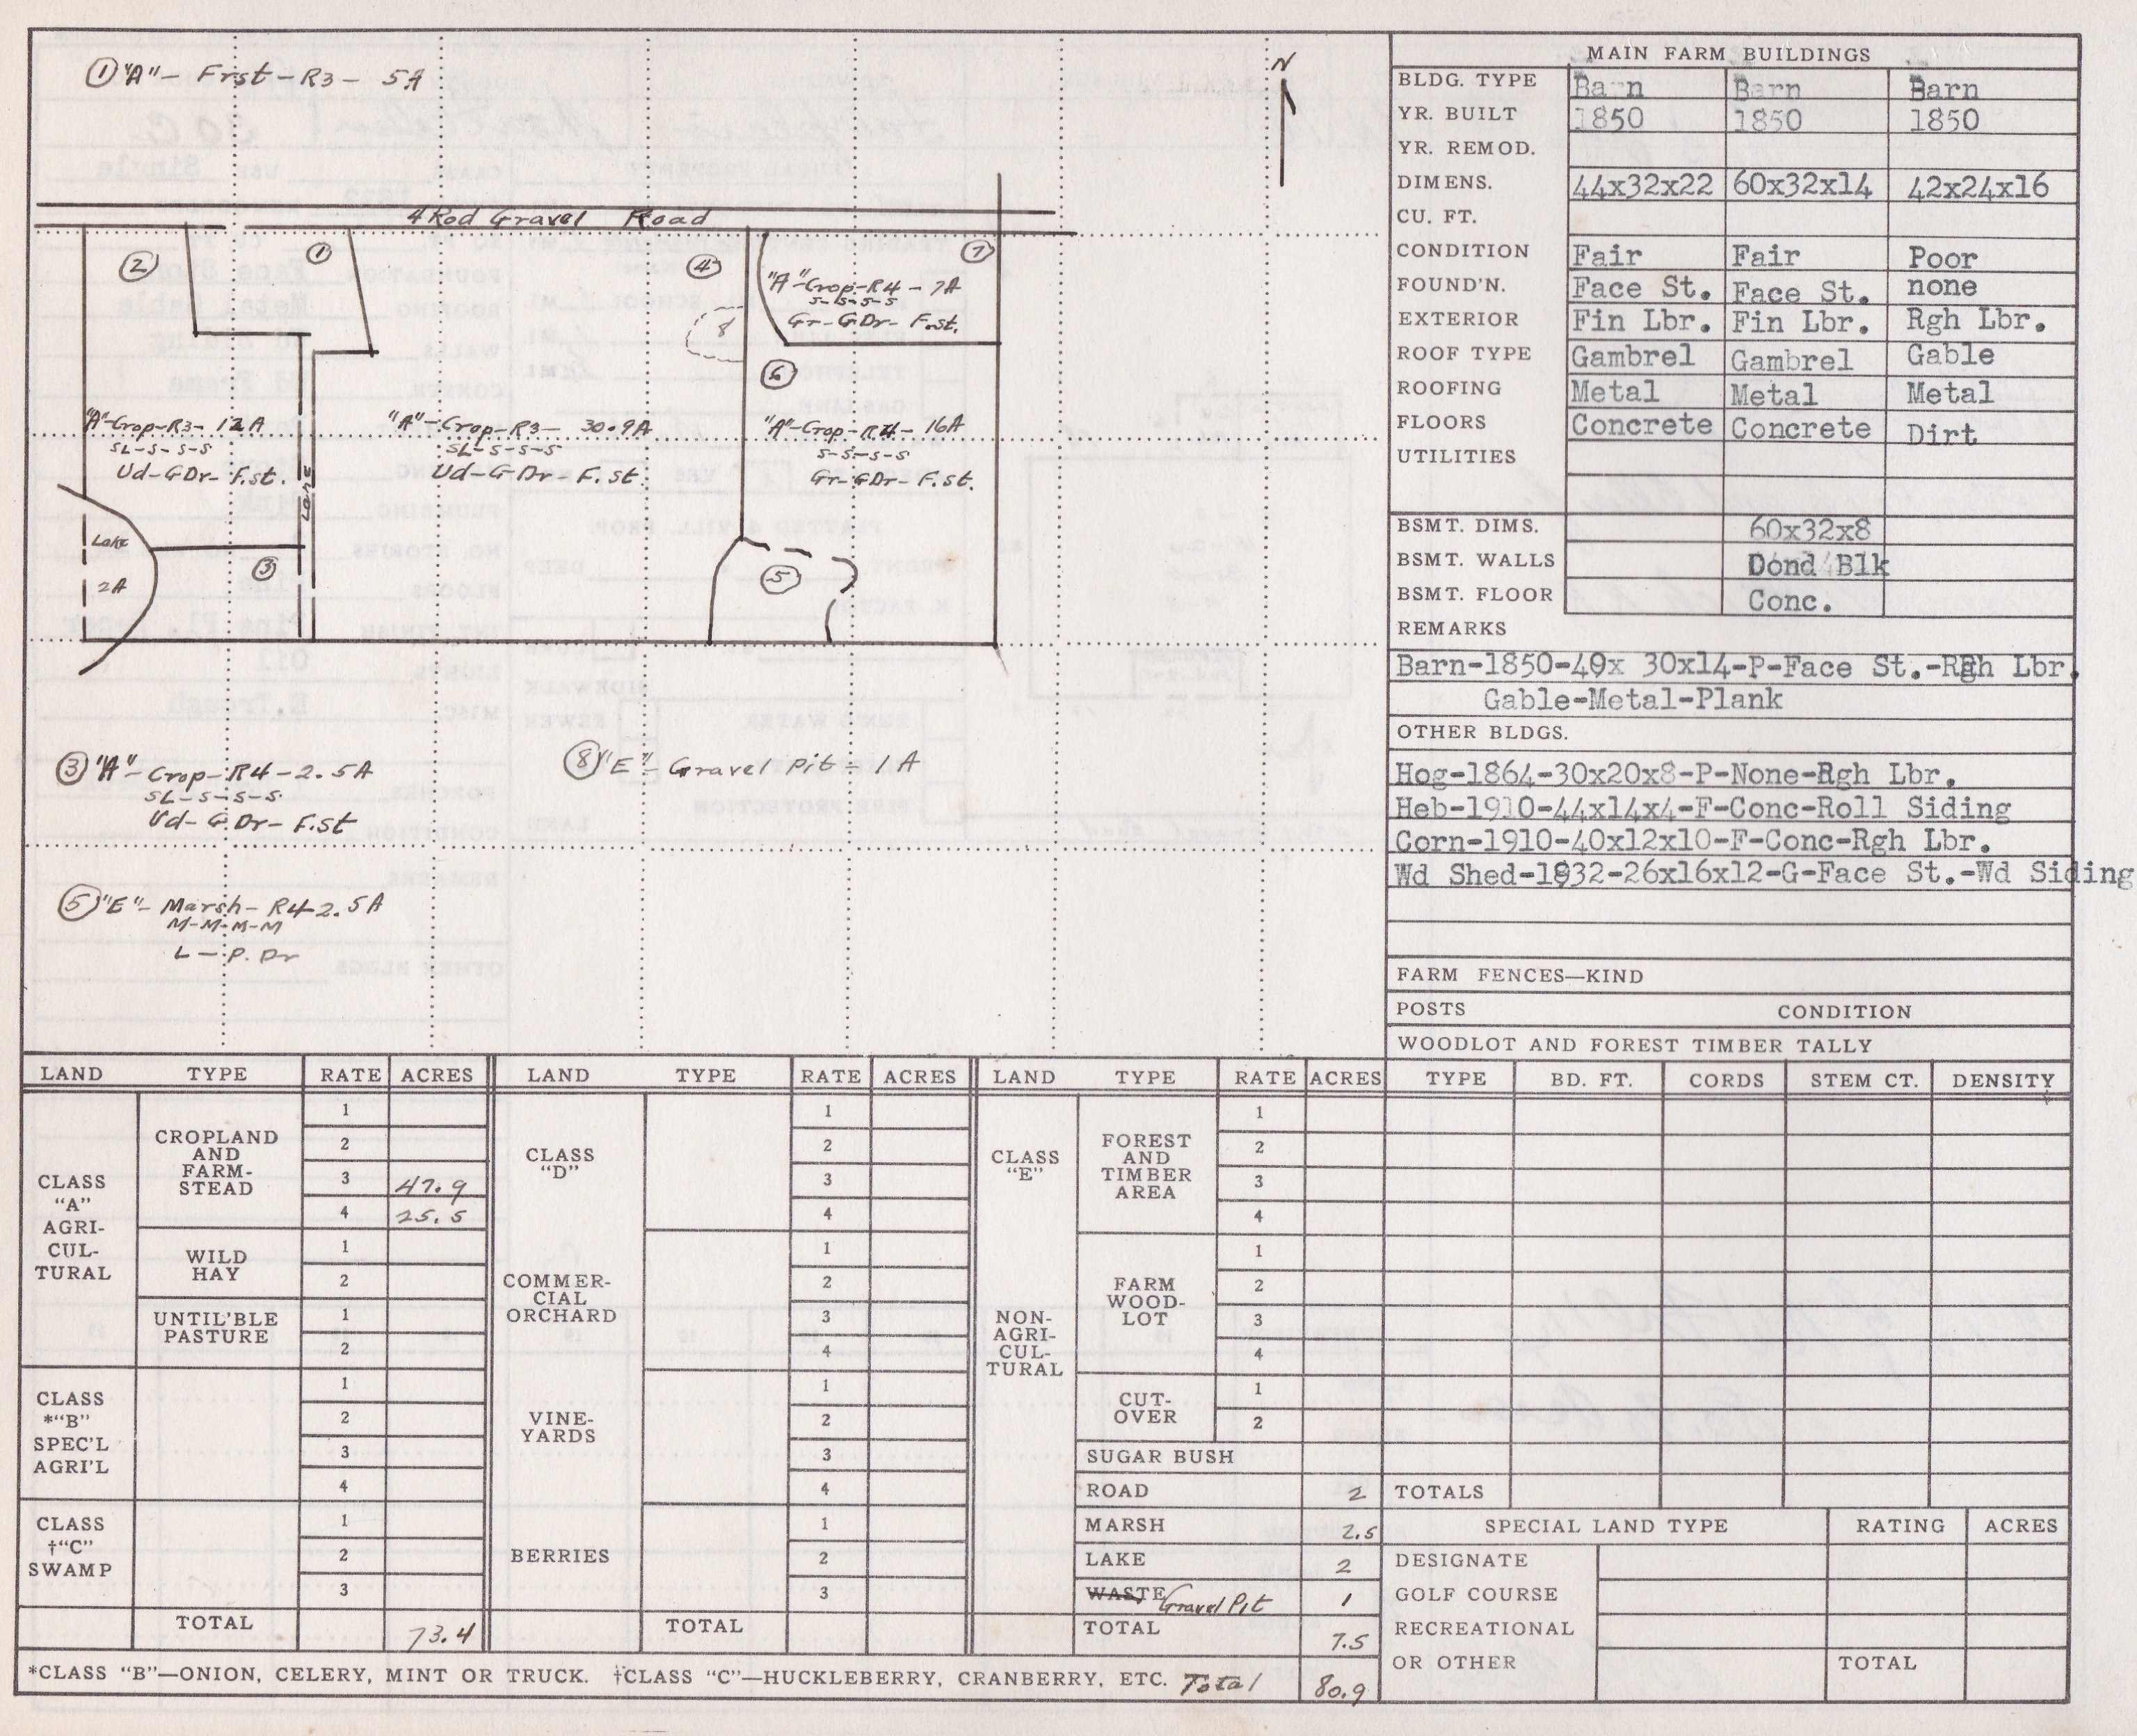 ① "A" - Frst - R3 - 5A
N
4 Rod Gravel Road
② ① ④ ⑦
"A"-Crop-R4-7A
S-S-S-S
Gr-GDr-F.st.
8
⑥
"A"-Crop-R3-12A
SL-S-S-S
Ud-GDr-F.st.
"A"-Crop-R3-30.9A
SL-S-S-S
Ud-G-Dr-F.st.
"A"-Crop-R4-16A
S-S-S-S
Gr-GDr-F.st.
Lane
Lake
2A
③
⑤
③ "A"-Crop-R4-2.5A
SL-S-S-S
Ud-G Dr-F.st
⑧ "E"-Gravel Pit-1A
⑤ "E"-Marsh-R4-2.5A
M-M-M-M
L-P. Dr
MAIN FARM BUILDINGS
BLDG. TYPE Barn Barn Barn
YR. BUILT 1850 1850 1850
YR. REMOD.
DIMENS. 44x32x22 60x32x14 42x24x16
CU. FT.
CONDITION Fair Fair Poor
FOUND'N. Face St. Face St. none
EXTERIOR Fin Lbr. Fin Lbr. Rgh Lbr.
ROOF TYPE Gambrel Gambrel Gable
ROOFING Metal Metal Metal
FLOORS Concrete Concrete Dirt
UTILITIES
BSMT. DIMS. 60x32x8
BSMT. WALLS Dond Blk
BSMT. FLOOR Conc.
REMARKS
Barn-1850-49x 30x14-P-Face St.-Rgh Lbr.
Gable-Metal-Plank
OTHER BLDGS.
Hog-1864-30x20x8-P-None-Rgh Lbr.
Heb-1910-44x14x4-F-Conc-Roll Siding
Corn-1910-40x12x10-F-Conc-Rgh Lbr.
Wd Shed-1932-26x16x12-G-Face St.-Wd Siding
FARM FENCES—KIND
POSTS CONDITION
WOODLOT AND FOREST TIMBER TALLY
TYPE BD. FT. CORDS STEM CT. DENSITY
TOTALS
SPECIAL LAND TYPE RATING ACRES
DESIGNATE
GOLF COURSE
RECREATIONAL
OR OTHER TOTAL
LAND TYPE RATE ACRES
CLASS
"A"
AGRI-
CUL-
TURAL
CROPLAND
AND
FARM-
STEAD
1
2
3 47.9
4 25.5
WILD
HAY
1
2
UNTIL'BLE
PASTURE
1
2
CLASS
*"B"
SPEC'L
AGRI'L
1
2
3
4
CLASS
†"C"
SWAMP
1
2
3
TOTAL 73.4
LAND TYPE RATE ACRES
CLASS
"D"
1
2
3
4
COMMER-
CIAL
ORCHARD
1
2
3
4
VINE-
YARDS
1
2
3
4
BERRIES
1
2
3
TOTAL
LAND TYPE RATE ACRES
CLASS
"E"
NON-
AGRI-
CUL-
TURAL
FOREST
AND
TIMBER
AREA
1
2
3
4
FARM
WOOD-
LOT
1
2
3
4
CUT-
OVER
1
2
SUGAR BUSH
ROAD 2
MARSH 2.5
LAKE 2
WASTE Gravel Pit 1
TOTAL 7.5
*CLASS "B"—ONION, CELERY, MINT OR TRUCK. †CLASS "C"—HUCKLEBERRY, CRANBERRY, ETC. Total 80.9